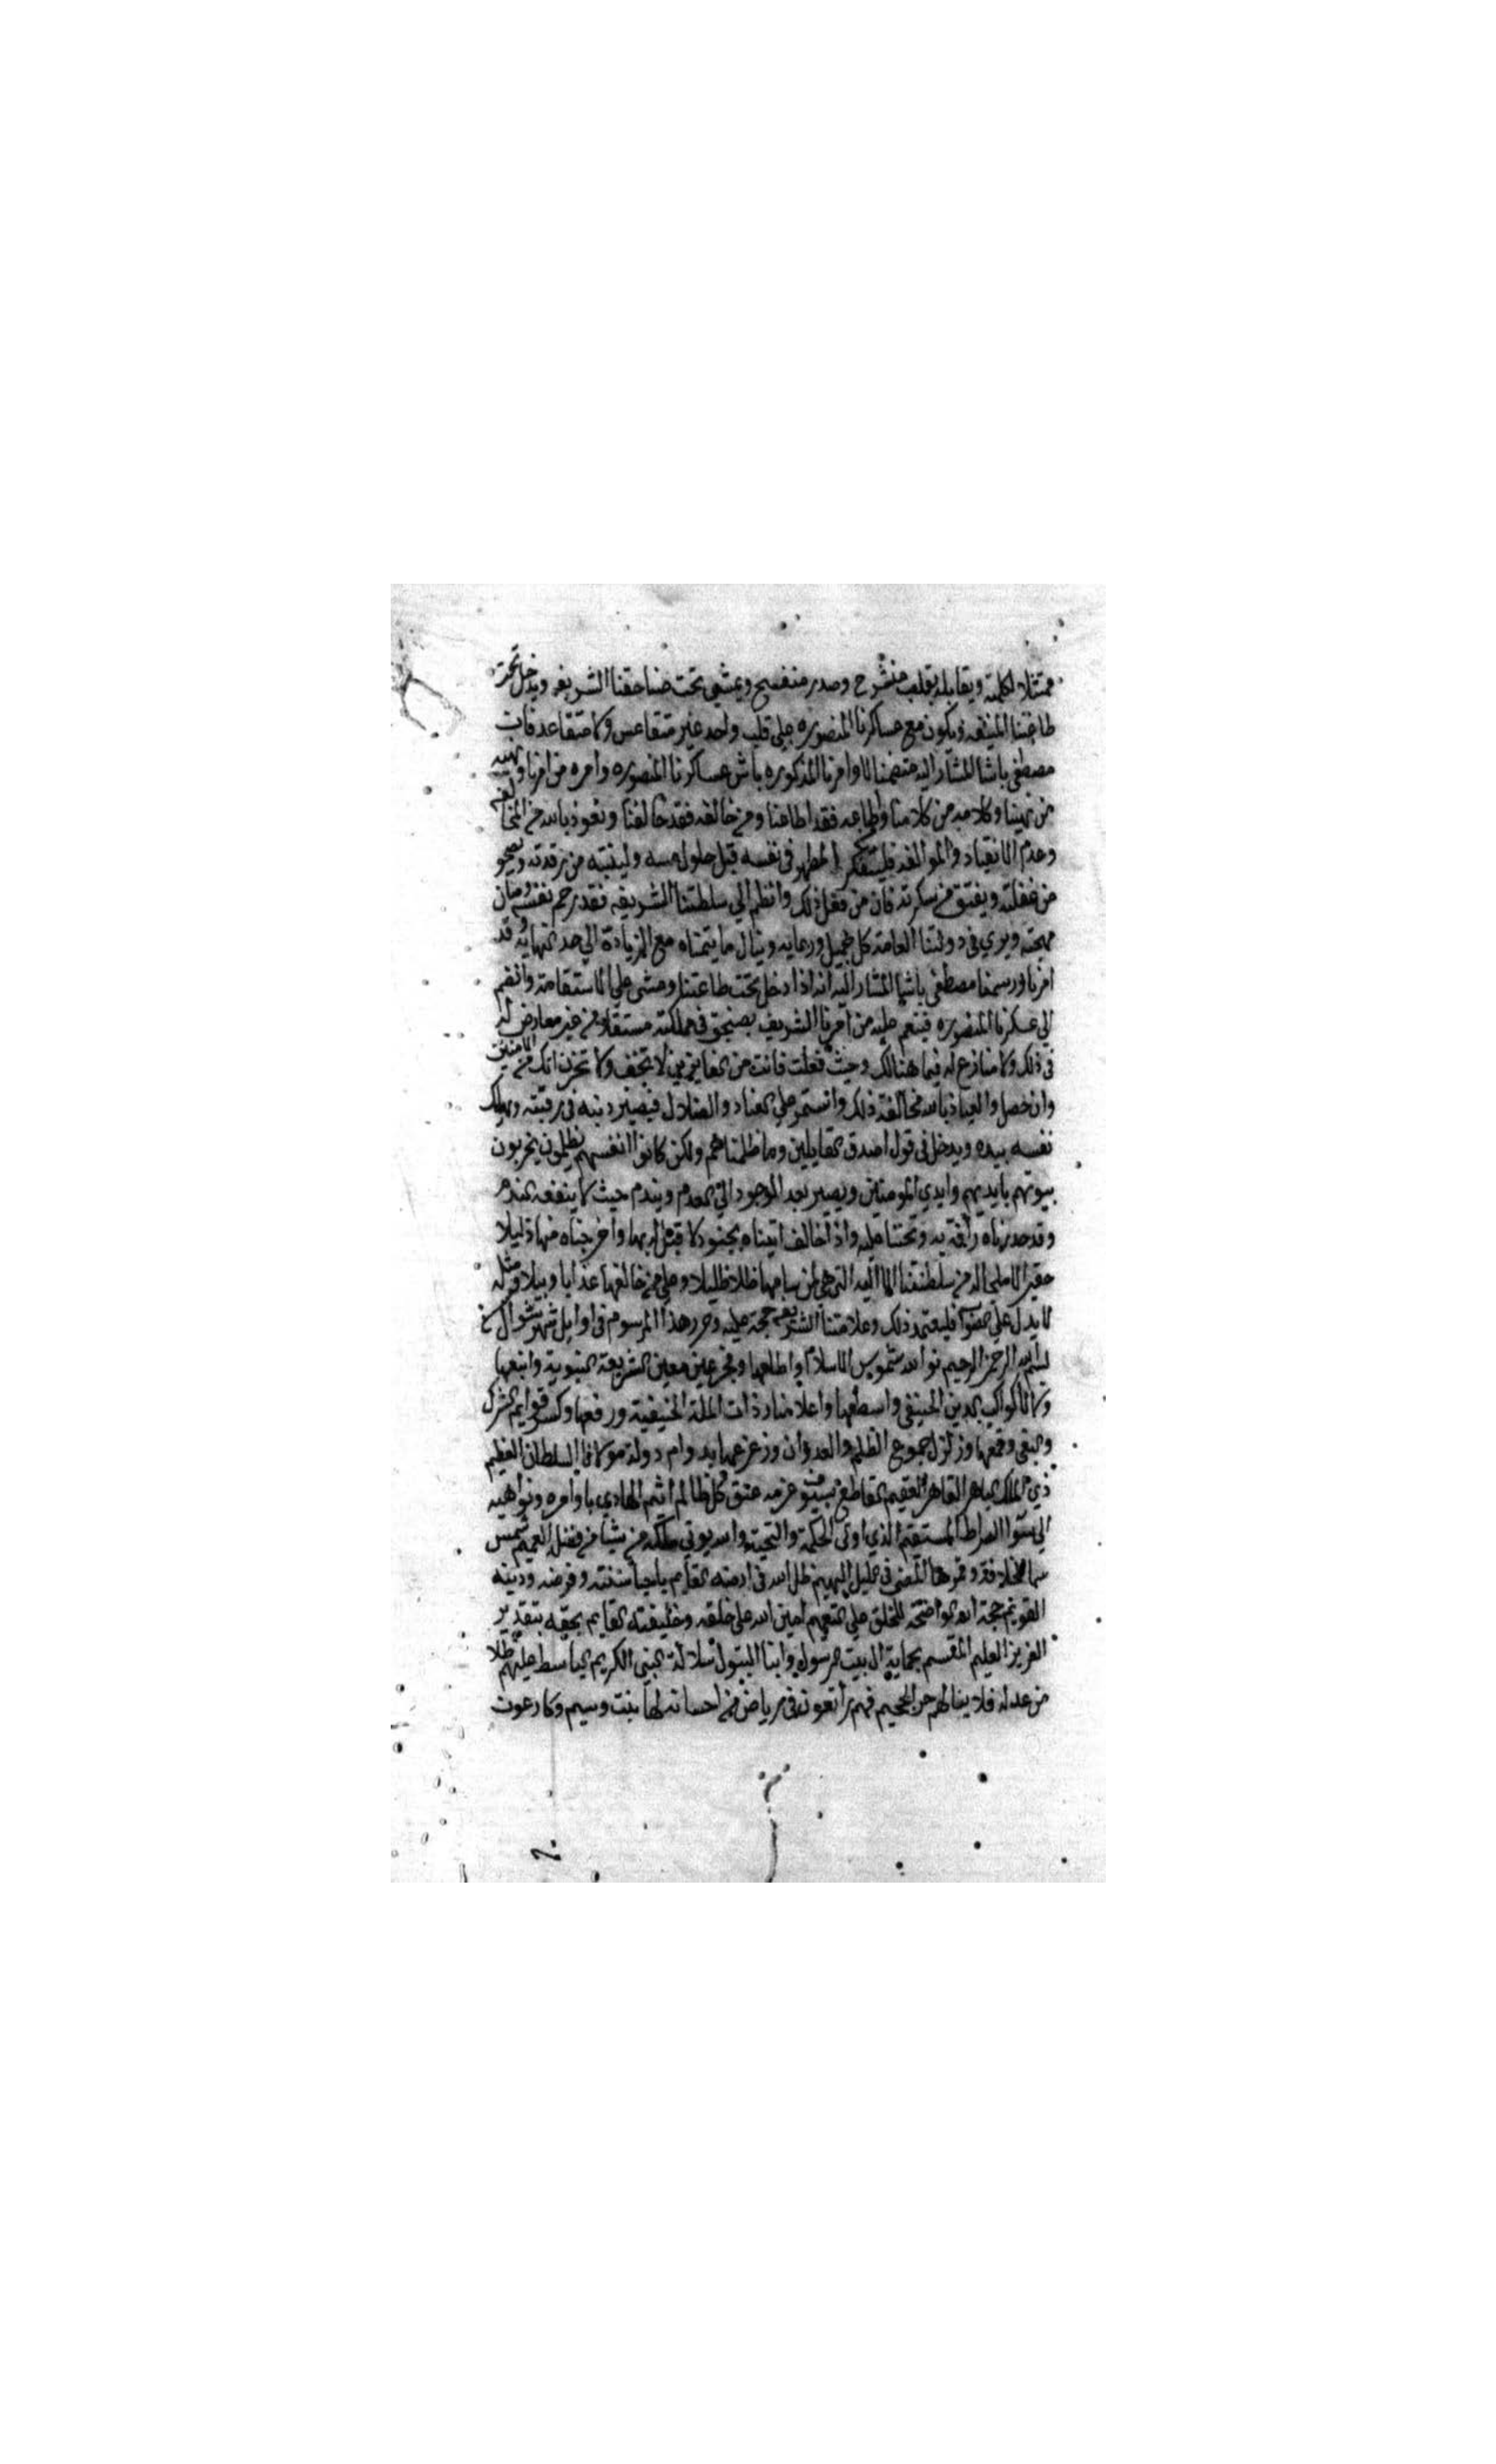 ممتثلا لكلمته ويقابله بقلب منشرح وصدر منفسح ويمشي تحت صناجقنا الشريفه ويدخل تحت
طاعتنا المنيفه ويكون مع عساكرنا المنصوره على قلب واحد غير متقاعس ولا متقاعد فان
مصطفى باشا المشار اليه متضمنا لاوامرنا المذكوره باش عساكرنا المنصوره وامره من امرنا ونهيه
من نهينا وكلامه من كلامنا واطاعه فقد اطاعنا ومن خالفه فقد خالفنا ونعوذ بالله من المخالفه
وعدم الانقياد والموالفه فليتفكر المطهر في نفسه قبل حلول رمسه ولينتبه من رقدته ويصحو
من غفلته ويفيق من سكرته فان من فعل ذلك وانظم الي سلطتنا الشريفه فقد رحم نفسه وصان
مهجته ويري في دولتنا العامة كل جميل ورعايه وينال ما يتمناه مع الزيادة الي حد النهايه وقد
امرنا ورسمنا مصطفى باشا المشار اليه انه اذا دخل تحت طاعتنا ومشى علي الاستقامة وانضم
الي عسكرنا المنصوره فينعم عليه من امرنا الشريف بصنجق في مملكته مستقلا من غير معارض له
في ذلك ولا منازع له فيما هنالك وحيث فعلت فانت من الفايزين لا تخف ولا تحزن انك من الامنين
وان حصل والعياذ بالله مخالفة ذلك وانستمر علي العناد والضلال فيصير ذنبه في رقبته ويهلك
نفسه بيده ويدخل في قول اصدق القايلين وما ظلمناهم ولكن كانوا انفسهم يظلمون يخربون
بيوتهم بايديهم وايدي المومنين ويصير بعد الموجود الي العدم ويندم حيث لا ينفعه الندم
وقد حذرناه رأفة به وتحننا عليه واذا خالف اتيناه بجنود لا قبل له بها واخرجناه منها ذليلا
حقيرا لا ملجا له من سلطنتنا العاليه التي هي لمن سالمها ظلا ظليلا وعلي من خالفها عذابا وبيلا ومثله
لا يدل علي صواب فليعتمد ذلك وعلامتنا الشريفه حجة عليه وحرر هذا المرسوم في اوايل شهر شوال
بسم الله الرحمن الرحيم نور الله شموس الاسلام واطلعها وفجر عين معين الشريعة النبوية وانبعها
كواكب الدين الحنيفي واسطعها واعلا منار ذات الملة الحنيفية ورفعها وكسر قوايم الشرك
والبغي وقمعها وزلزل جموع الظلم والعدوان وزعزعها بدوام دولة مولانا السلطان العظيم
ذي الملك الباهر القاهر العقيم القاطع بسيف عزمه عنق كل ظالم اثيم الهادي باوامره ونواهيه
الي سوا الصراط المستقيم الذي اوتي الحكمة والله يوتي ملكه من يشا من فضله العميم شمس
سما الخلافة وقمرها المضي في الليل البهيم ظل الله في ارضه القايم باحيا سنته وفرضه ودينه
القويم حجة الله الواضحة للخلق علي امين الله على خلقه وخليفته القايم بحقه بتقدير
العزيز العليم المقسم بحماية ال بيت الرسول وابنا البتول سلالة النبي الكريم الباسط عليهم ظلا
من عدله فلا ينالهم حر الجحيم فهم راتعون في رياض من احسانه لها نبت وسيم وكارعون